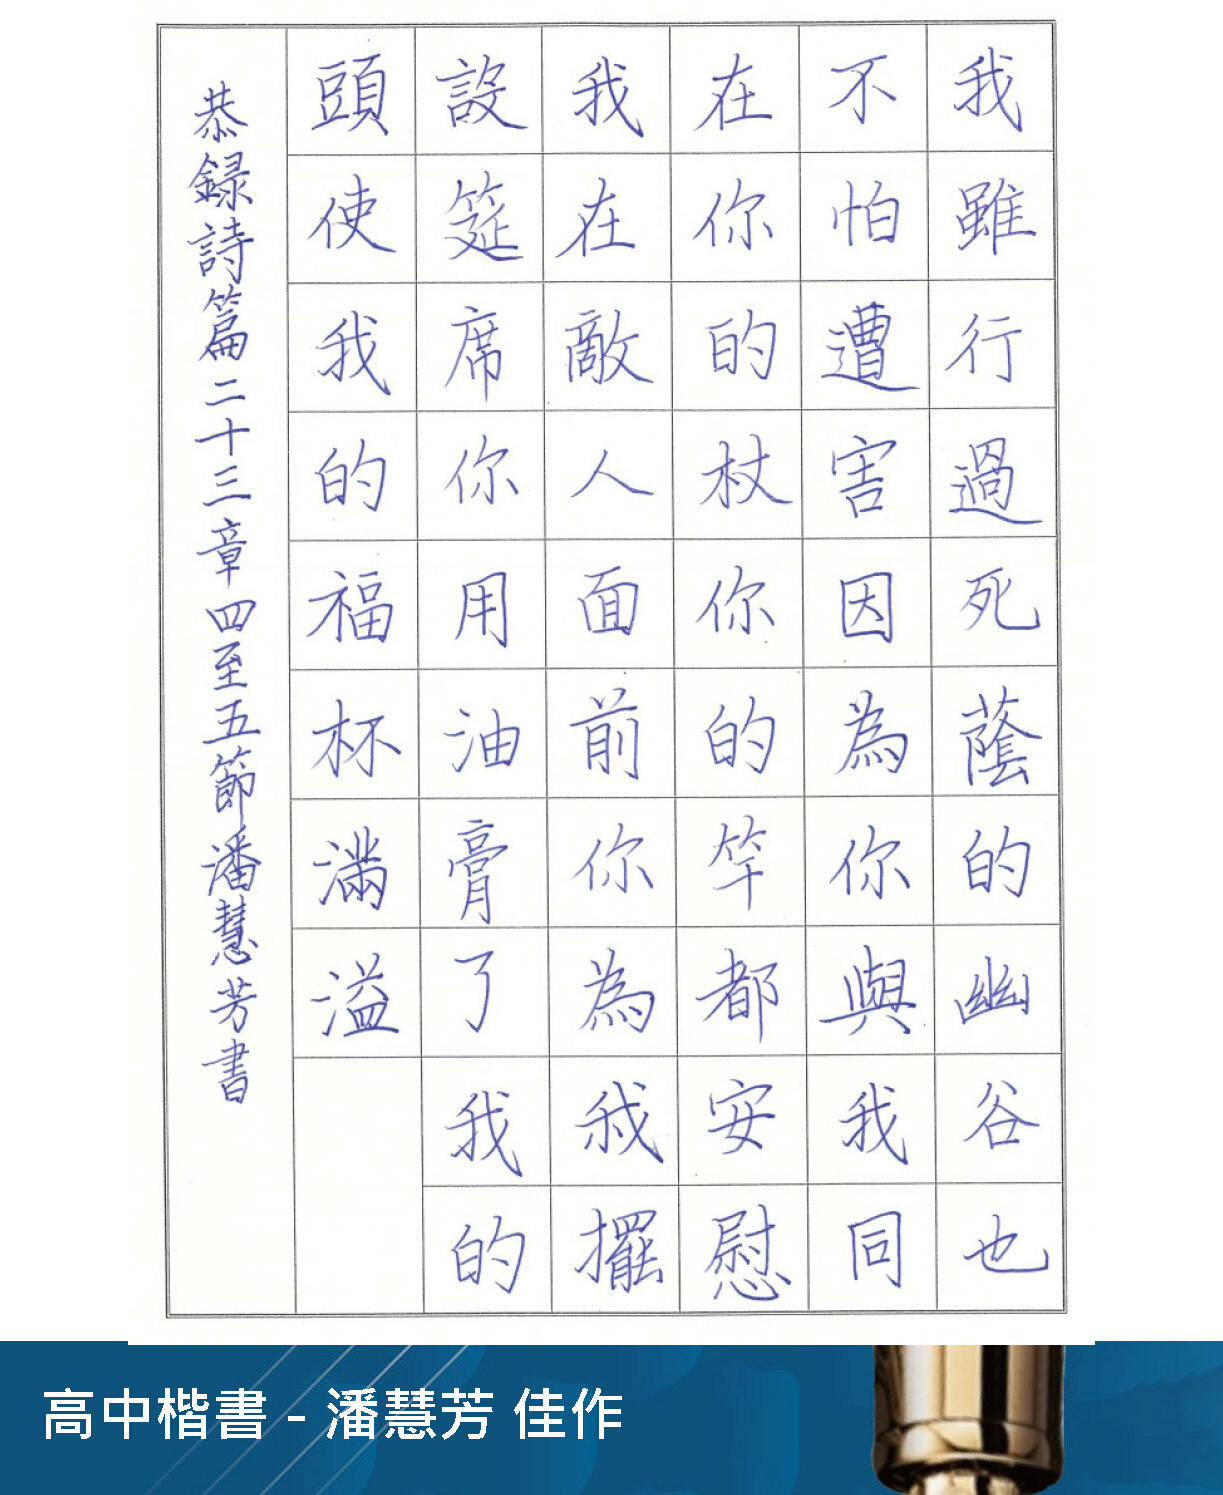 我雖行過死蔭的幽谷也
不怕遭害因為你與我同
在你的杖你的竿都安慰
我在敵人面前你為我擺
設筵席你用油膏了我的
頭使我的福杯滿溢
恭録詩篇二十三章四至五節潘慧芳書
高中楷書 - 潘慧芳 佳作